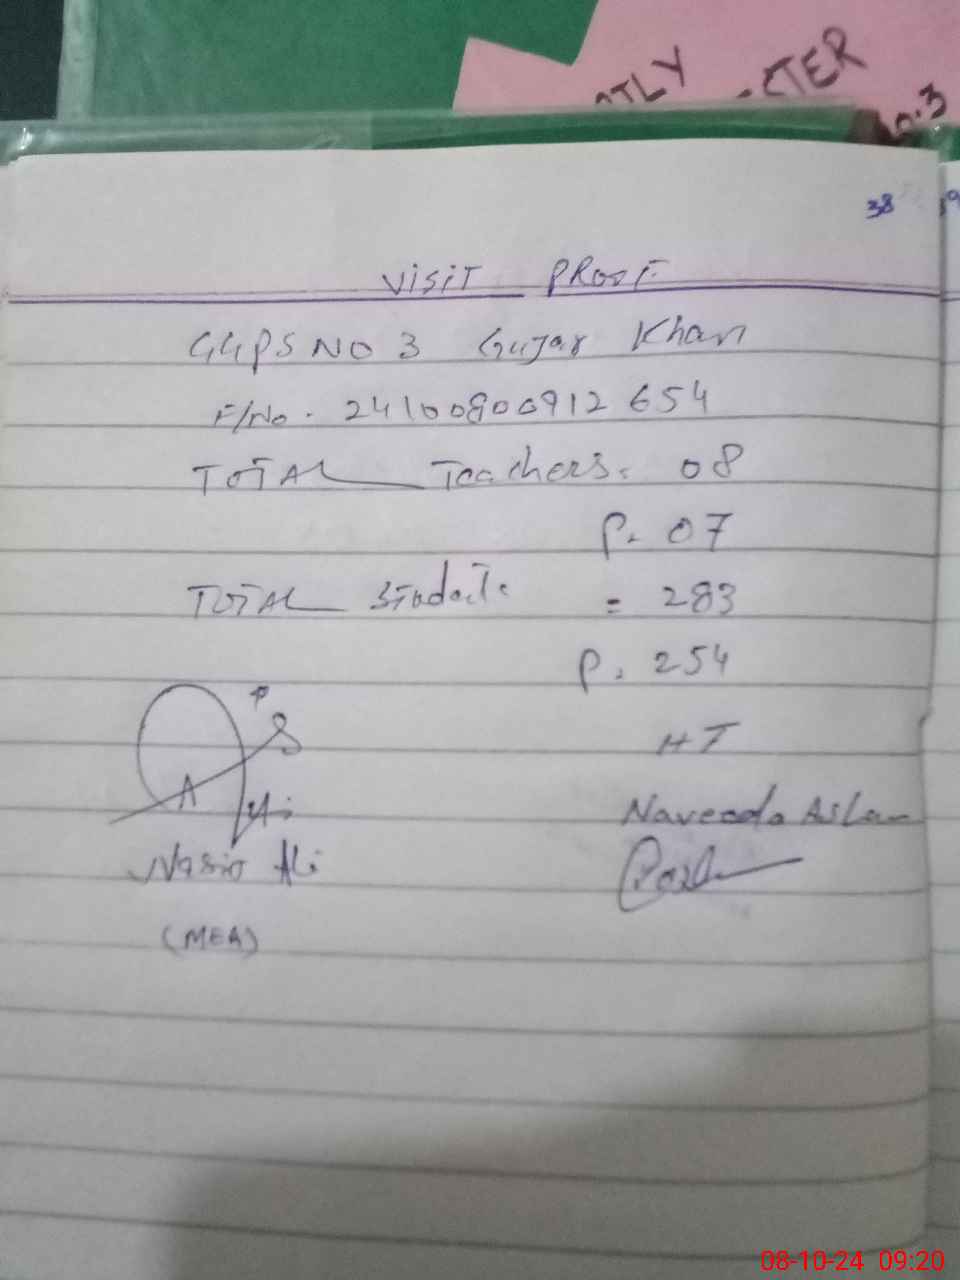 TLY
CTER
No.3
38
39
VISIT PROOF
GGPS NO 3 Gujar Khan
F/No. 24100800912654
TOTAL Teachers. 08
P. 07
TOTAL Students = 283
P. 254
HT
Naveeda Aslam
Nasir Ali
(MEA)
08-10-24 09:20